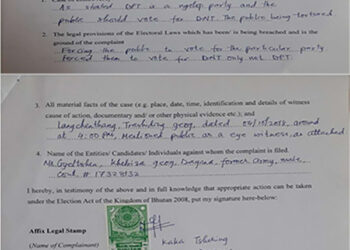 As stated DPT is a ngolop party and the
public should vote for DNT. The public being tortured
2. The legal provisions of the Electoral Laws which has been/ is being breached and is the
ground of the complaint
Forcing the public to vote for the particular party
forced them to vote for DNT only not DPT.
3. All material facts of the case (e.g. place, date, time, identification and details of witness
cause of action, documentary and/ or other physical evidence etc.); and
Langchenthang, Trashiding geog, dated 04/10/2018, around
at 4:00 PM, Mentioned public as a eye witness, as attached
4. Name of the Entities/ Candidates/ Individuals against whom the complaint is filed.
Mr. geog, Dagana, former Army, male,
Cont. # 17328132
I hereby, in testimony of the above and in full knowledge that appropriate action can be taken
under the Election Act of the Kingdom of Bhutan 2008, put my signature here-below:
Affix Legal Stamp
(Name of Complainant)
Kaka Tshering